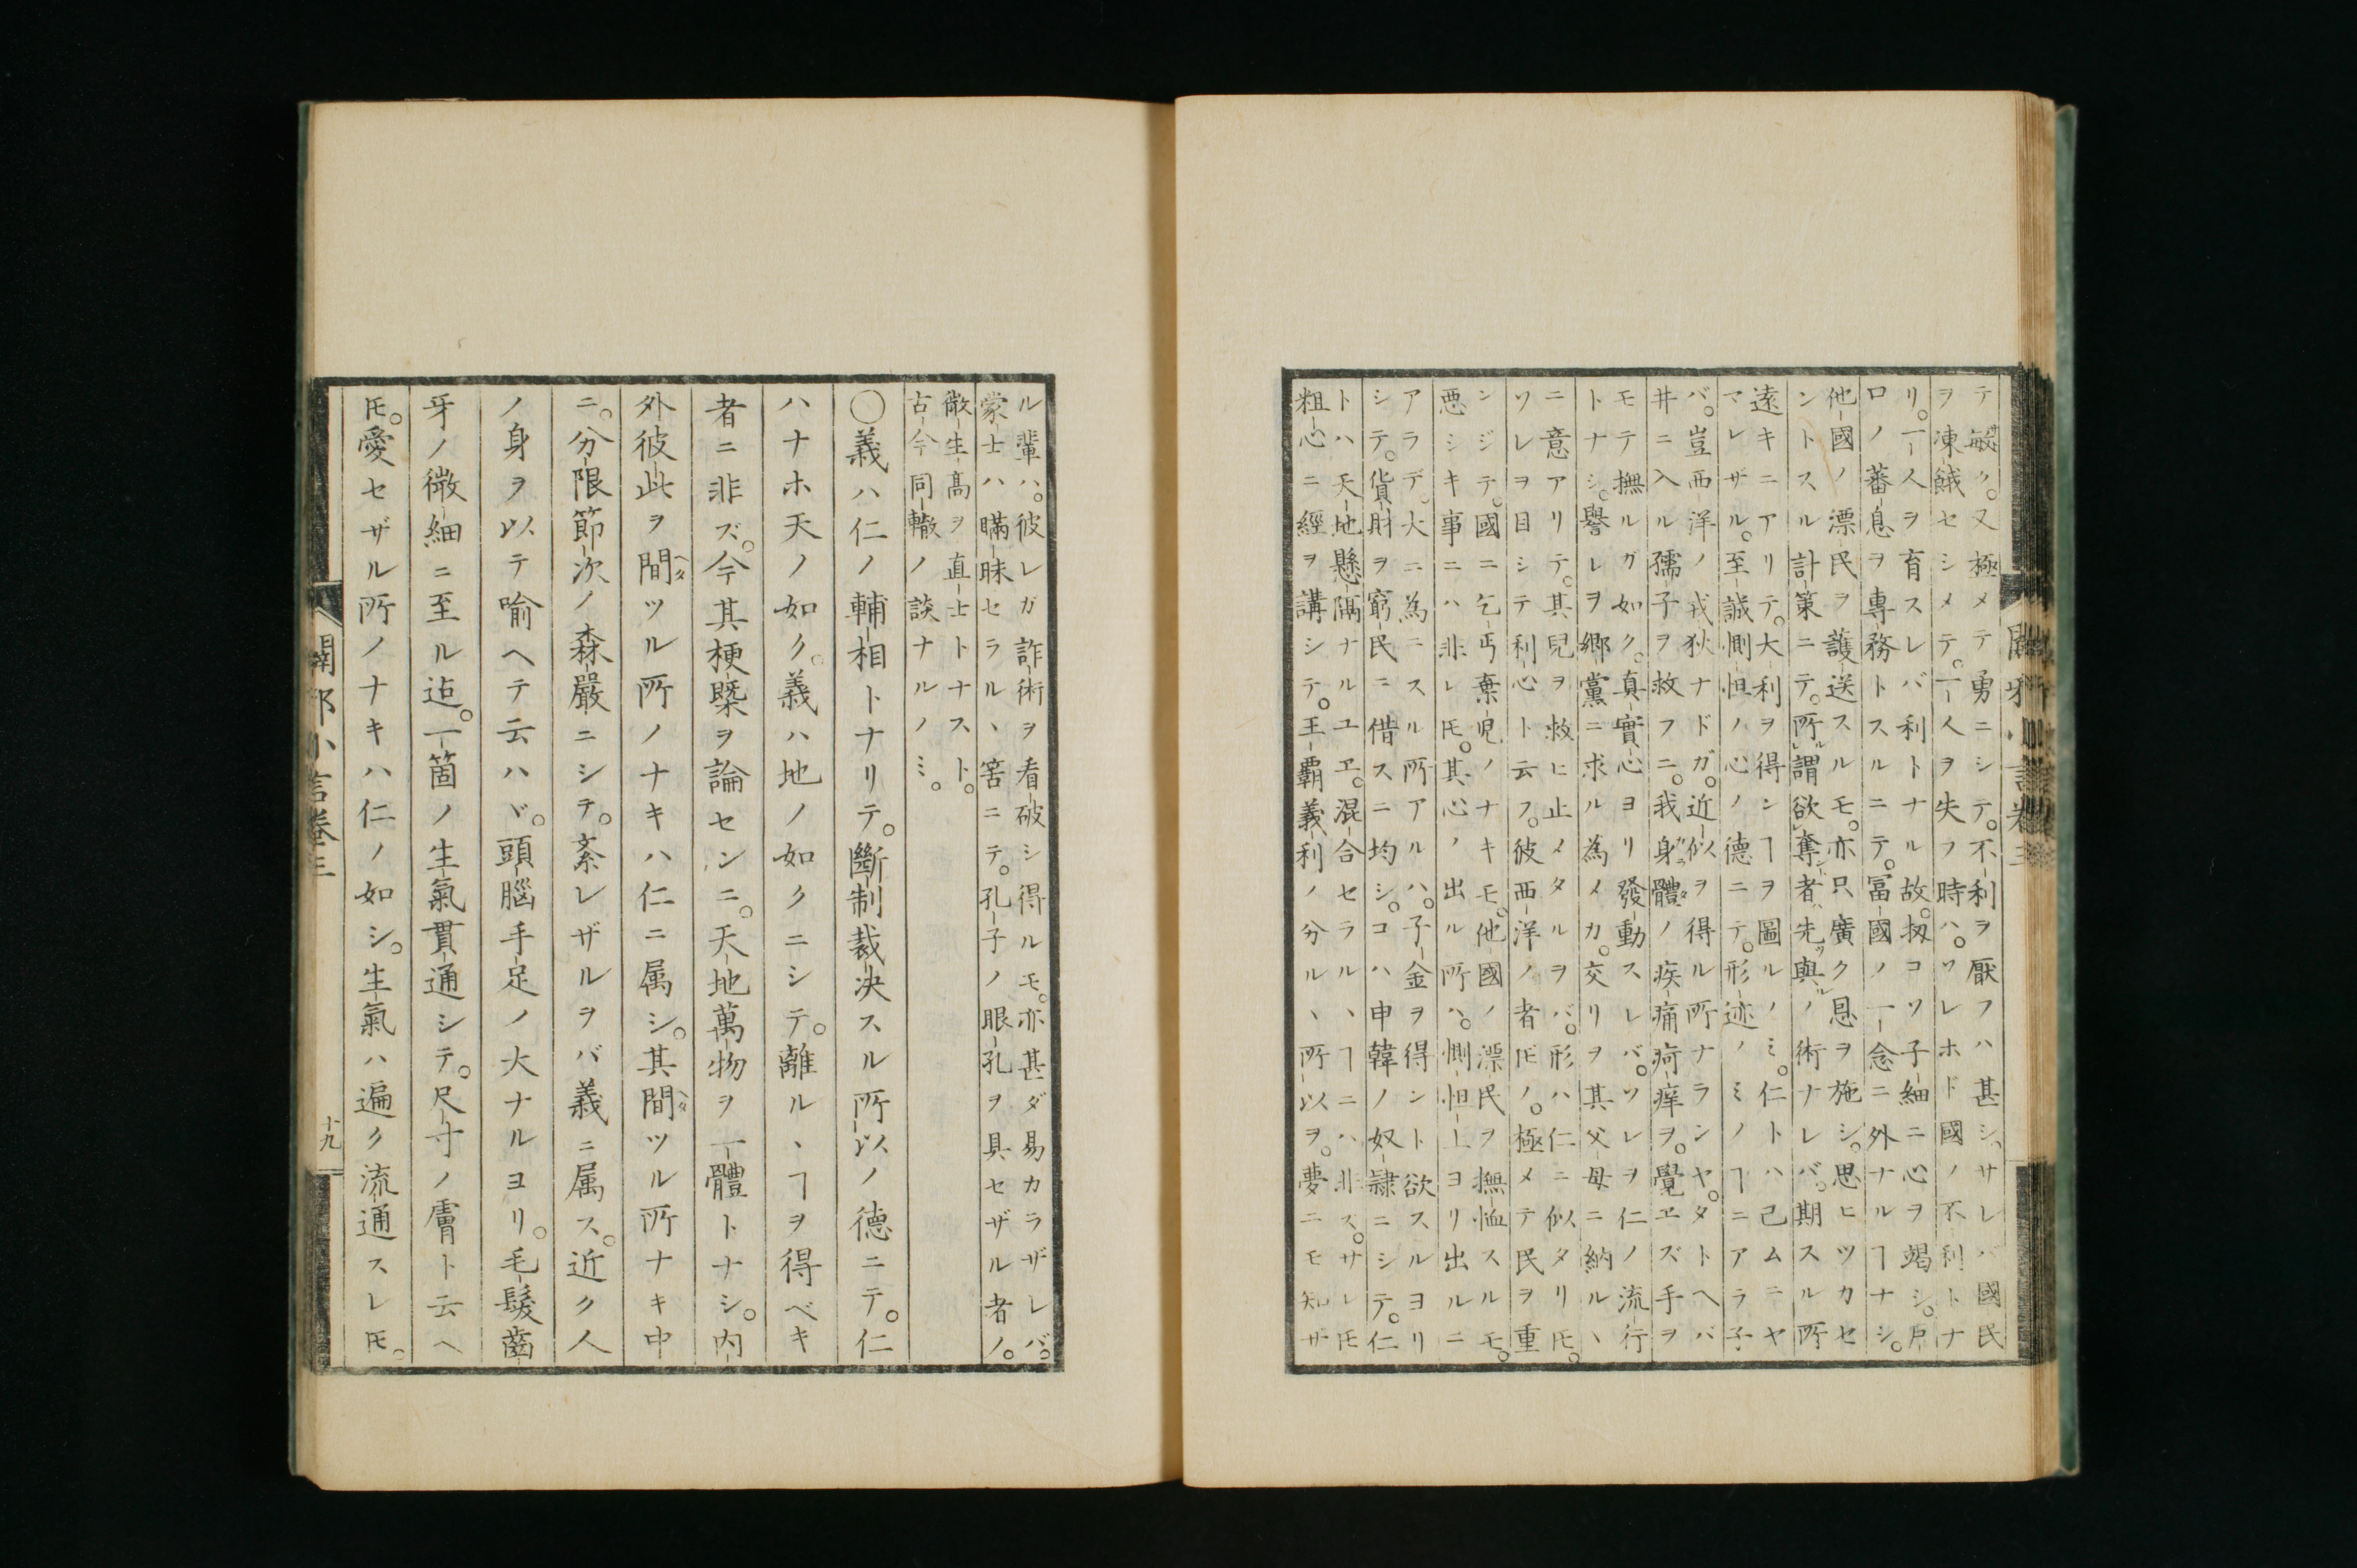 テ敏ク。又極メテ勇ニシテ。不利ヲ厭フハ甚シ、サレバ國民
ヲ凍餓セシメテ。一人ヲ失フ時ハ。ソレホド國ノ不利トナ
リ。一人ヲ育スレバ利トナル故。扨コソ子細ニ心ヲ竭シ。戸
口ノ蕃息ヲ專務トスルニテ。冨國ノ一念ニ外ナルヿナシ。
他國ノ漂民ヲ護送スルモ。亦只廣ク恩ヲ施シ。思ヒツカセ
ントスル計策ニテ。所謂欲奪者先與ノ術ナレバ。期スル所
遠キニアリテ。大利ヲ得ンヿヲ圖ルノミ。仁トハ己ムニヤ
マレザル。至誠惻怛ノ心ノ德ニテ。形迹ノミノヿニアラ子
バ。豈西洋ノ戎狄ナドガ。近似ヲ得ル所ナランヤ。タトヘバ
井ニ入ル孺子ヲ救フニ。我身體ノ疾痛疴痒ヲ。覺ヱズ手ヲ
モテ撫ルガ如ク。真實心ヨリ發動スレバ。ソレヲ仁ノ流行
トナシ。譽レヲ郷黨ニ求ル為メカ。交リヲ其父母ニ納ルヽ
ニ意アリテ。其兒ヲ救ヒ止メタルヲバ。形ハ仁ニ似タリㇳモ。
ソレヲ目シテ利心ト云フ。彼西洋ノ者ㇳモノ。極メテ民ヲ重
ンジテ。國ニ乞丐棄児ノナキモ。他國ノ漂民ヲ撫恤スルモ。
悪シキ事ニハ非レㇳモ。其心ノ出ル所ハ。惻怛上ヨリ出ルニ
アラデ。大ニ為ニスル所アルハ。子金ヲ得ント欲スルヨリ
シテ。貨財ヲ窮民ニ借スニ均シ。コハ申韓ノ奴隷ニシテ。仁
トハ天地懸隔ナルユヱ。混合セラルヽヿニハ非ズ。サレㇳモ
粗心ニ經ヲ講シテ。王覇義利ノ分ルヽ所以ヲ。夢ニモ知ザ
ル輩ハ。彼レガ詐術ヲ看破シ得ルモ。亦甚ダ易カラザレバ。
蒙士ハ瞞昧セラルヽ筈ニテ。孔子ノ眼孔ヲ具セザル者ノ。
微生高ヲ直士トナスト。
古今同轍ノ談ナルノミ。
〇義ハ仁ノ輔相トナリテ。斷制裁决スル所以ノ德ニテ。仁
ハナホ天ノ如ク。義ハ地ノ如クニシテ。離ルヽヿヲ得ベキ
者ニ非ズ。今其梗槩ヲ論センニ。天地萬物ヲ一體トナシ。内
外彼此ヲ間ツル所ノナキハ仁ニ属シ。其間ツル所ナキ中
ニ。分限節次ノ森嚴ニシテ。紊レザルヲバ義ニ属ス。近ク人
ノ身ヲ以テ喩ヘテ云ハヾ。頭腦手足ノ大ナルヨリ。毛髮齒
牙ノ微細ニ至ル迠。一箇ノ生氣貫通シテ。尺寸ノ膚ト云ヘ
ㇳモ。愛セザル所ノナキハ仁ノ如シ。生氣ハ遍ク流通スレㇳモ。
闢邪小言卷三
十九